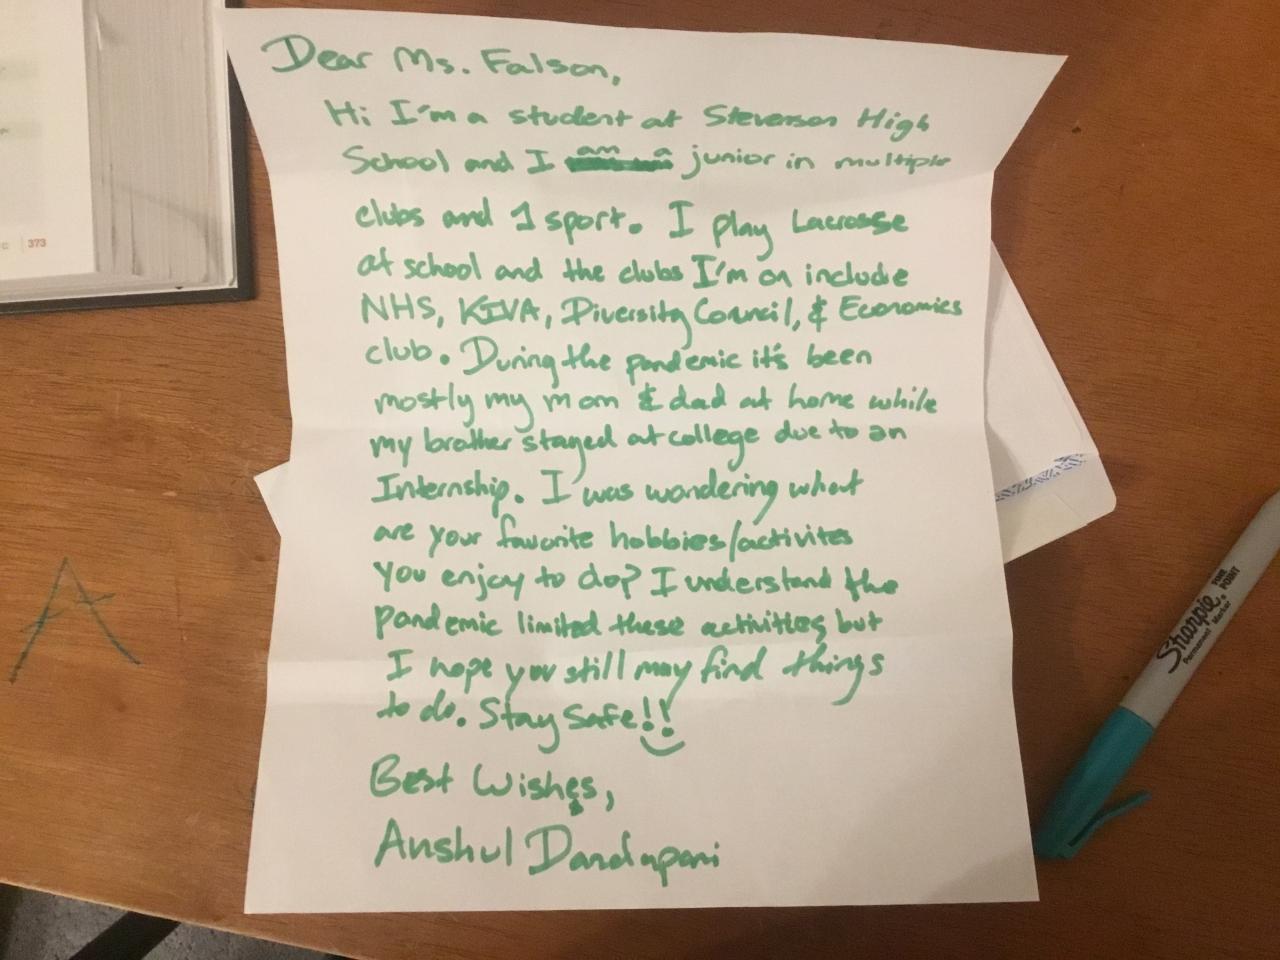 Dear Ms. Falson,
Hi I'm a student at Stevenson High
School and I am a junior in multiple
clubs and 1 sport. I play Lacrosse
at school and the clubs I'm on include
NHS, KIVA, Diversity Council, & Economics
club. During the pandemic it's been
mostly my mom & dad at home while
my brother stayed at college due to an
Internship. I was wondering what
are your favorite hobbies/activites
you enjoy to do? I understand the
pandemic limited these activities but
I hope you still may find things
to do. Stay Safe!!
Best Wishes,
Anshul Dandapani
373
A
Sharpie
FINE POINT
Permanent Marker